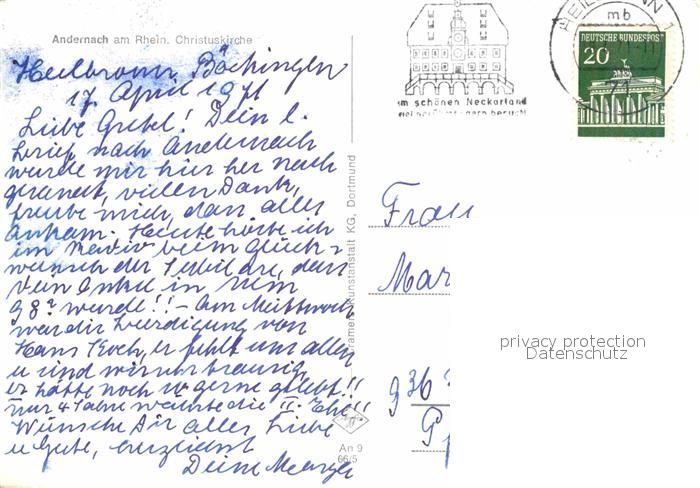 Andernach am Rhein. Christuskirche
HEILBRONN
mb
71
DEUTSCHE BUNDESPOST
20
Im schönen Neckarland
viel gern besucht
Heilbronn, Böckingen
17. April 1971
Liebe Gretel! Dein l.
Brief nach Andernach
wurde mir hier her nach
gesandt, vielen Dank,
freute mich, dass alles
ankam. Heute hörte ich
im Radio beim Glück-
wunsch der Jubilare, dass
Dein Onkel in
98? wurde!! - Am Mittwoch
war die Beerdigung von
Hans Koch, er fehlt uns allen
u sind wir sehr traurig,
er hätte noch so gerne gelebt!!
nur 4 Jahre währte die II. Ehe!!
Wünsche Dir alles Liebe
u Gute, herzlichst
Deine
Kunstanstalt KG, Dortmund
An 9
66/5
Frau
Mar
936
P
privacy protection
Datenschutz